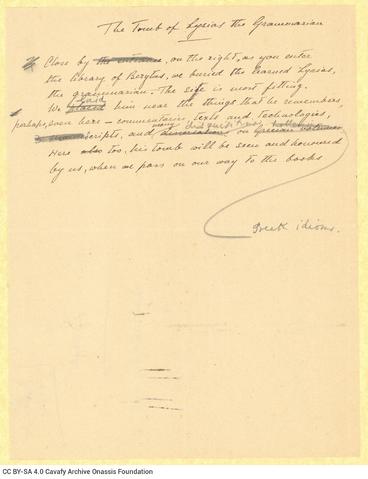 The Tomb of Lysias the Grammarian
Close by the entrance, on the right, as you enter
the library of Berytus, we buried the learned Lysias,
the grammarian. The site is most fitting.
We placed laid him near the things that he remembers,
perhaps, even here — commentaries, texts and technologies,
scripts, and many on Grecian volumes
Here also too, his tomb will be seen and honoured
by us, when we pass on our way to the books
Greek idioms.
CC BY-SA 4.0 Cavafy Archive Onassis Foundation